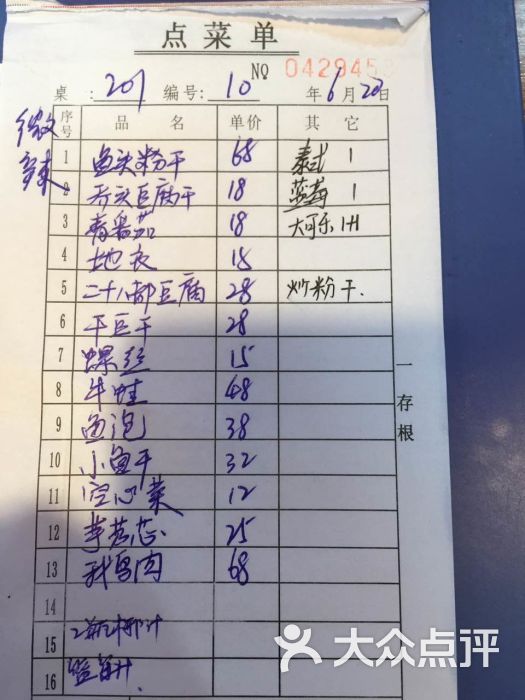 点菜单
NO 0429453
桌:201 编号:10 年6月20日
微辣
序号 品名 单价 其它
1 鱼头粉干 68 泰式 1
2 芋头豆腐干 18 蓝莓 1
3 青番茄 18 大可乐 1
4 地衣 18
5 二十八都豆腐 28 炒粉干.
6 干豆干 28
7 螺丝 15
8 牛蛙 48
9 鱼泡 38
10 小鱼干 32
11 空心菜 12
12 芋艿芯 25
13 鹅肉 68
14
15 2瓶椰汁
16 蓝莓汁.
一存根
大众点评